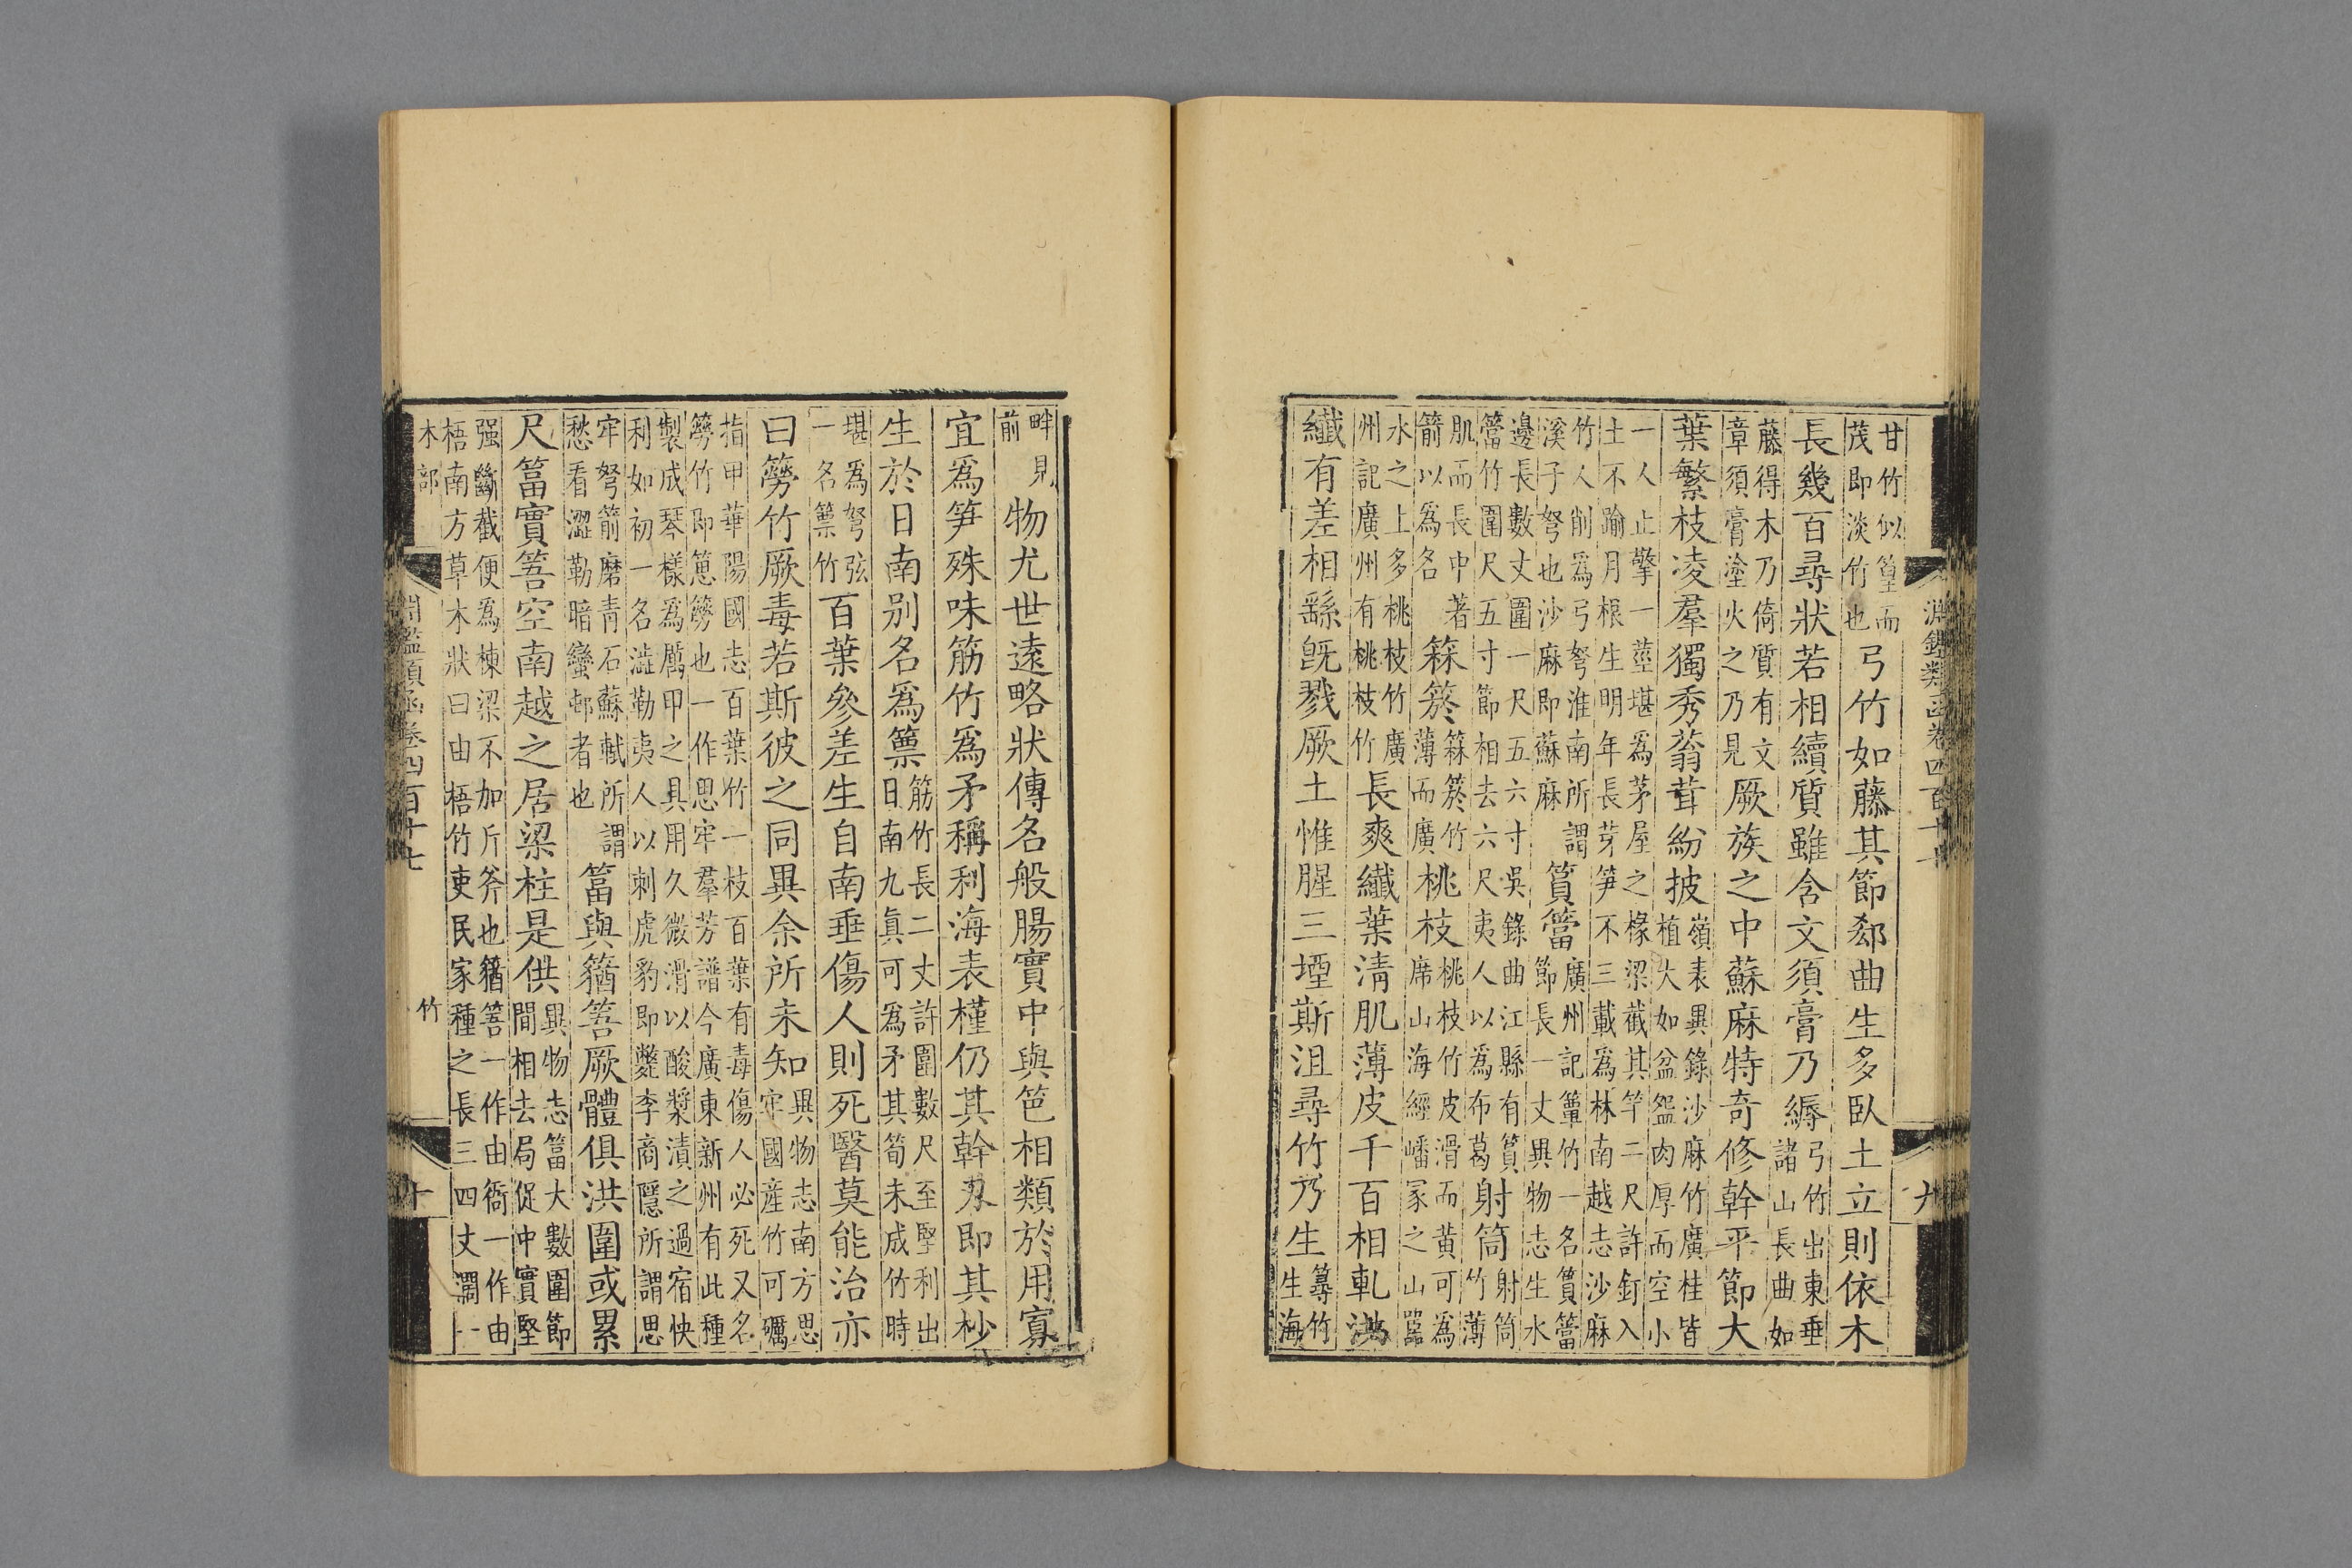 淵鑑類函卷四百十七　九
甘竹似篁而
茂即淡竹也
弓竹如藤其節郄曲生多臥土立則依木
長幾百尋狀若相續質雖含文須膏乃縟
弓竹出東垂
諸山長曲如
藤得木乃倚質有文
章須膏塗火之乃見
厥族之中蘇麻特奇修幹平節大
葉繁枝凌羣獨秀蓊茸紛披
嶺表異錄沙麻竹廣桂皆
植大如盆盌肉厚而空小
一人止擎一莖堪爲茅屋之椽梁截其竿二尺許釘入
土不踰月根生明年長芽笋不三載爲林南越志沙麻
竹人削爲弓弩淮南所謂
溪子弩也沙麻即蘇麻
篔簹
廣州記篔竹一名篔簹
節長一丈異物志生水
邊長數丈圍一尺五六寸吳錄曲江縣有篔
簹竹圍尺五寸節相去六尺夷人以爲布葛
射筒
射筒
竹薄
肌而長中著
箭以爲名
箖箊
箖箊竹
薄而廣
桃枝
桃枝竹皮滑而黃可爲
席山海經嶓冢之山囂
水之上多桃枝竹廣
州記廣州有桃枝竹
長爽纖葉清肌薄皮千百相軋洪
纖有差相繇旣戮厥土惟腥三堙斯沮尋竹乃生
竹
生海
畔見
前
物尤世遠略狀傳名般腸實中與笆相類於用寡
宜爲笋殊味筋竹爲矛稱利海表槿仍其幹刃即其杪
生於日南别名爲篻
筋竹長二丈許圍數尺至堅利出
日南九真可爲矛其筍未成竹時
堪爲弩弦
一名篻竹
百葉參差生自南垂傷人則死醫莫能治亦
曰簩竹厥毒若斯彼之同異余所未知
異物志南方思
牢國產竹可礪
指甲華陽國志百葉竹一枝百葉有毒傷人必死又名
簩竹即簩也一作思牢羣芳譜今廣東新州有此種
製成琴樣爲厲甲之具用久微滑以酸漿漬之過宿快
利如初一名澁勒夷人以刺虎豹即斃李商隱所謂思
牢弩箭磨青石蘇軾所謂
愁看澀勒暗蠻邨者也
簹與䉛䇾厥體俱洪圍或累
尺簹實䇾空南越之居梁柱是供
異物志簹大數圍節
間相去局促中實堅
强斷截便爲棟梁不加斤斧也䉛䇾一作由衙一作由
梧南方草木狀曰由梧竹吏民家種之長三四丈
木部　竹
淵鑑類函卷四百十七　十